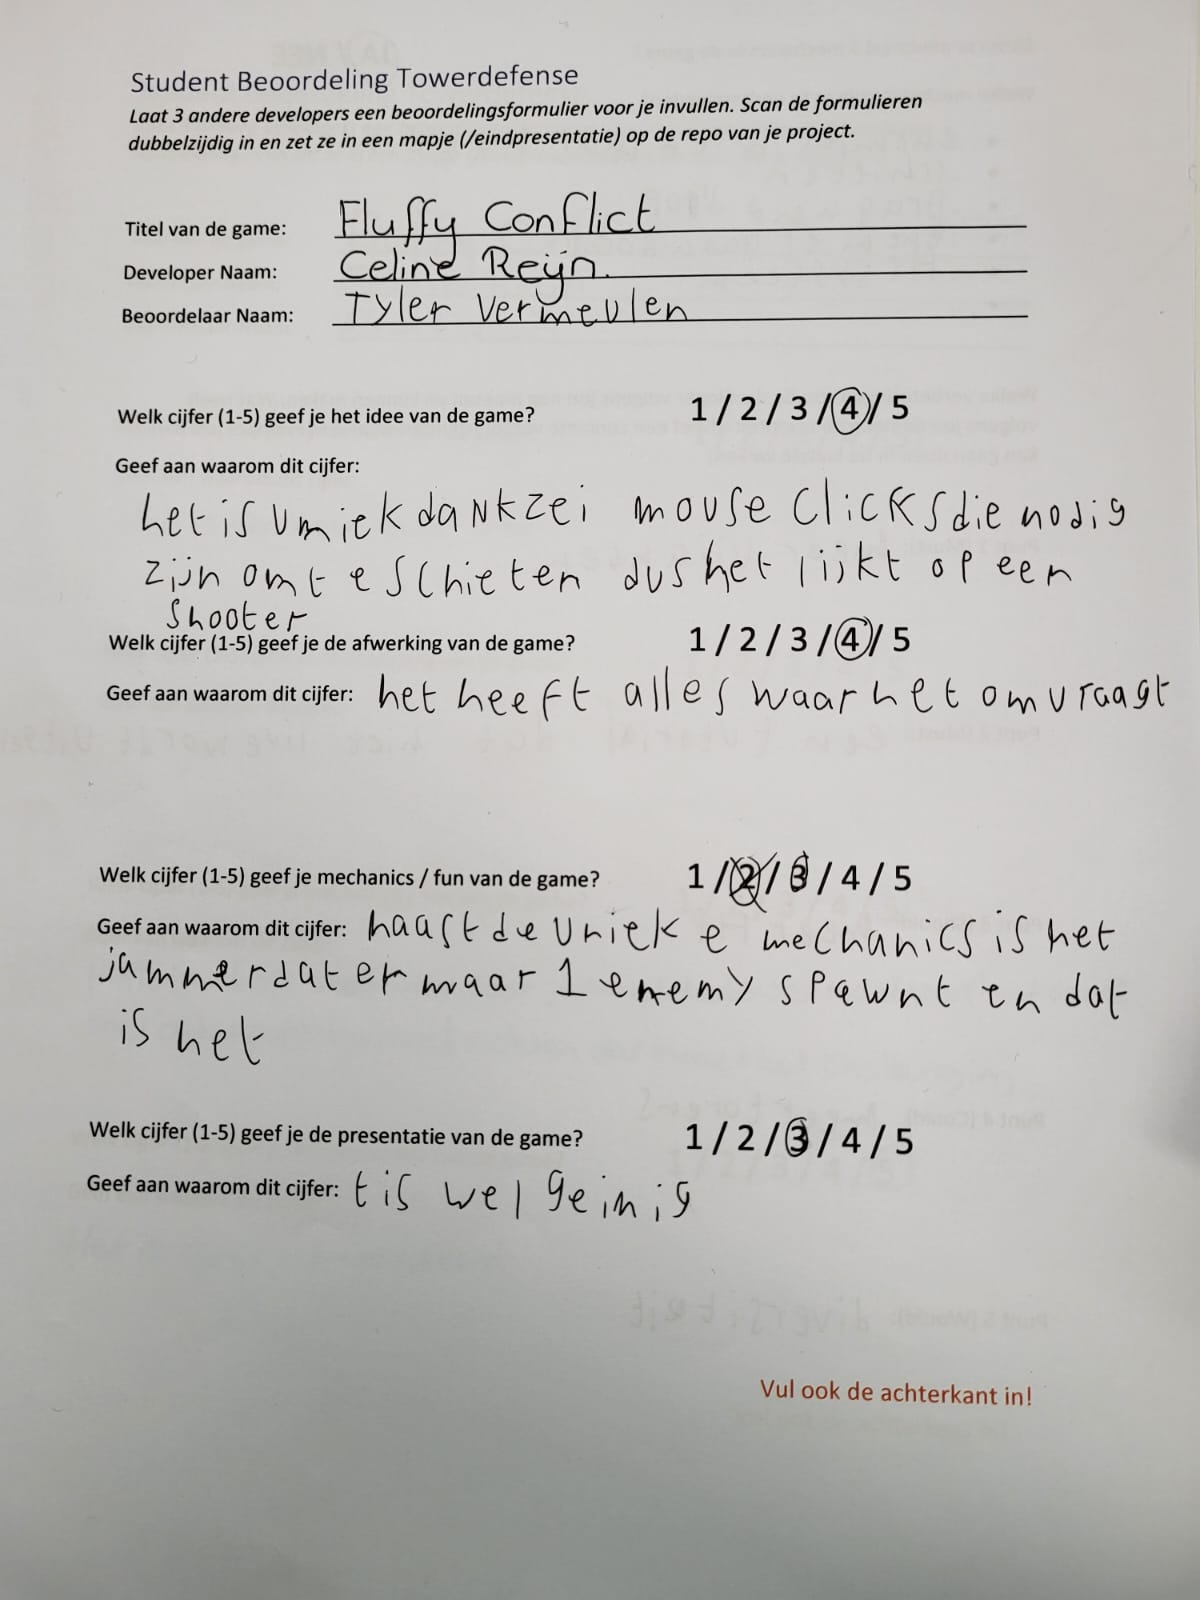 Student Beoordeling Towerdefense
Laat 3 andere developers een beoordelingsformulier voor je invullen. Scan de formulieren
dubbelzijdig in en zet ze in een mapje (/eindpresentatie) op de repo van je project.
Titel van de game: Fluffy Conflict
Developer Naam: Celine Reijn.
Beoordelaar Naam: Tyler Vermeulen
Welk cijfer (1-5) geef je het idee van de game? 1 / 2 / 3 / 4 / 5
Geef aan waarom dit cijfer:
het is Umiek dankzei mouse clicks die nodig
zijn om te schieten dus het lijkt op een
shooter
Welk cijfer (1-5) geef je de afwerking van de game? 1 / 2 / 3 / 4 / 5
Geef aan waarom dit cijfer: het heeft alles waar het om vraagt
Welk cijfer (1-5) geef je mechanics / fun van de game? 1 / 2 / 3 / 4 / 5
Geef aan waarom dit cijfer: haast de unieke mechanics is het
jammer dat er maar 1 enemy spawnt en dat
is het
Welk cijfer (1-5) geef je de presentatie van de game? 1 / 2 / 3 / 4 / 5
Geef aan waarom dit cijfer: tis wel geinig
Vul ook de achterkant in!